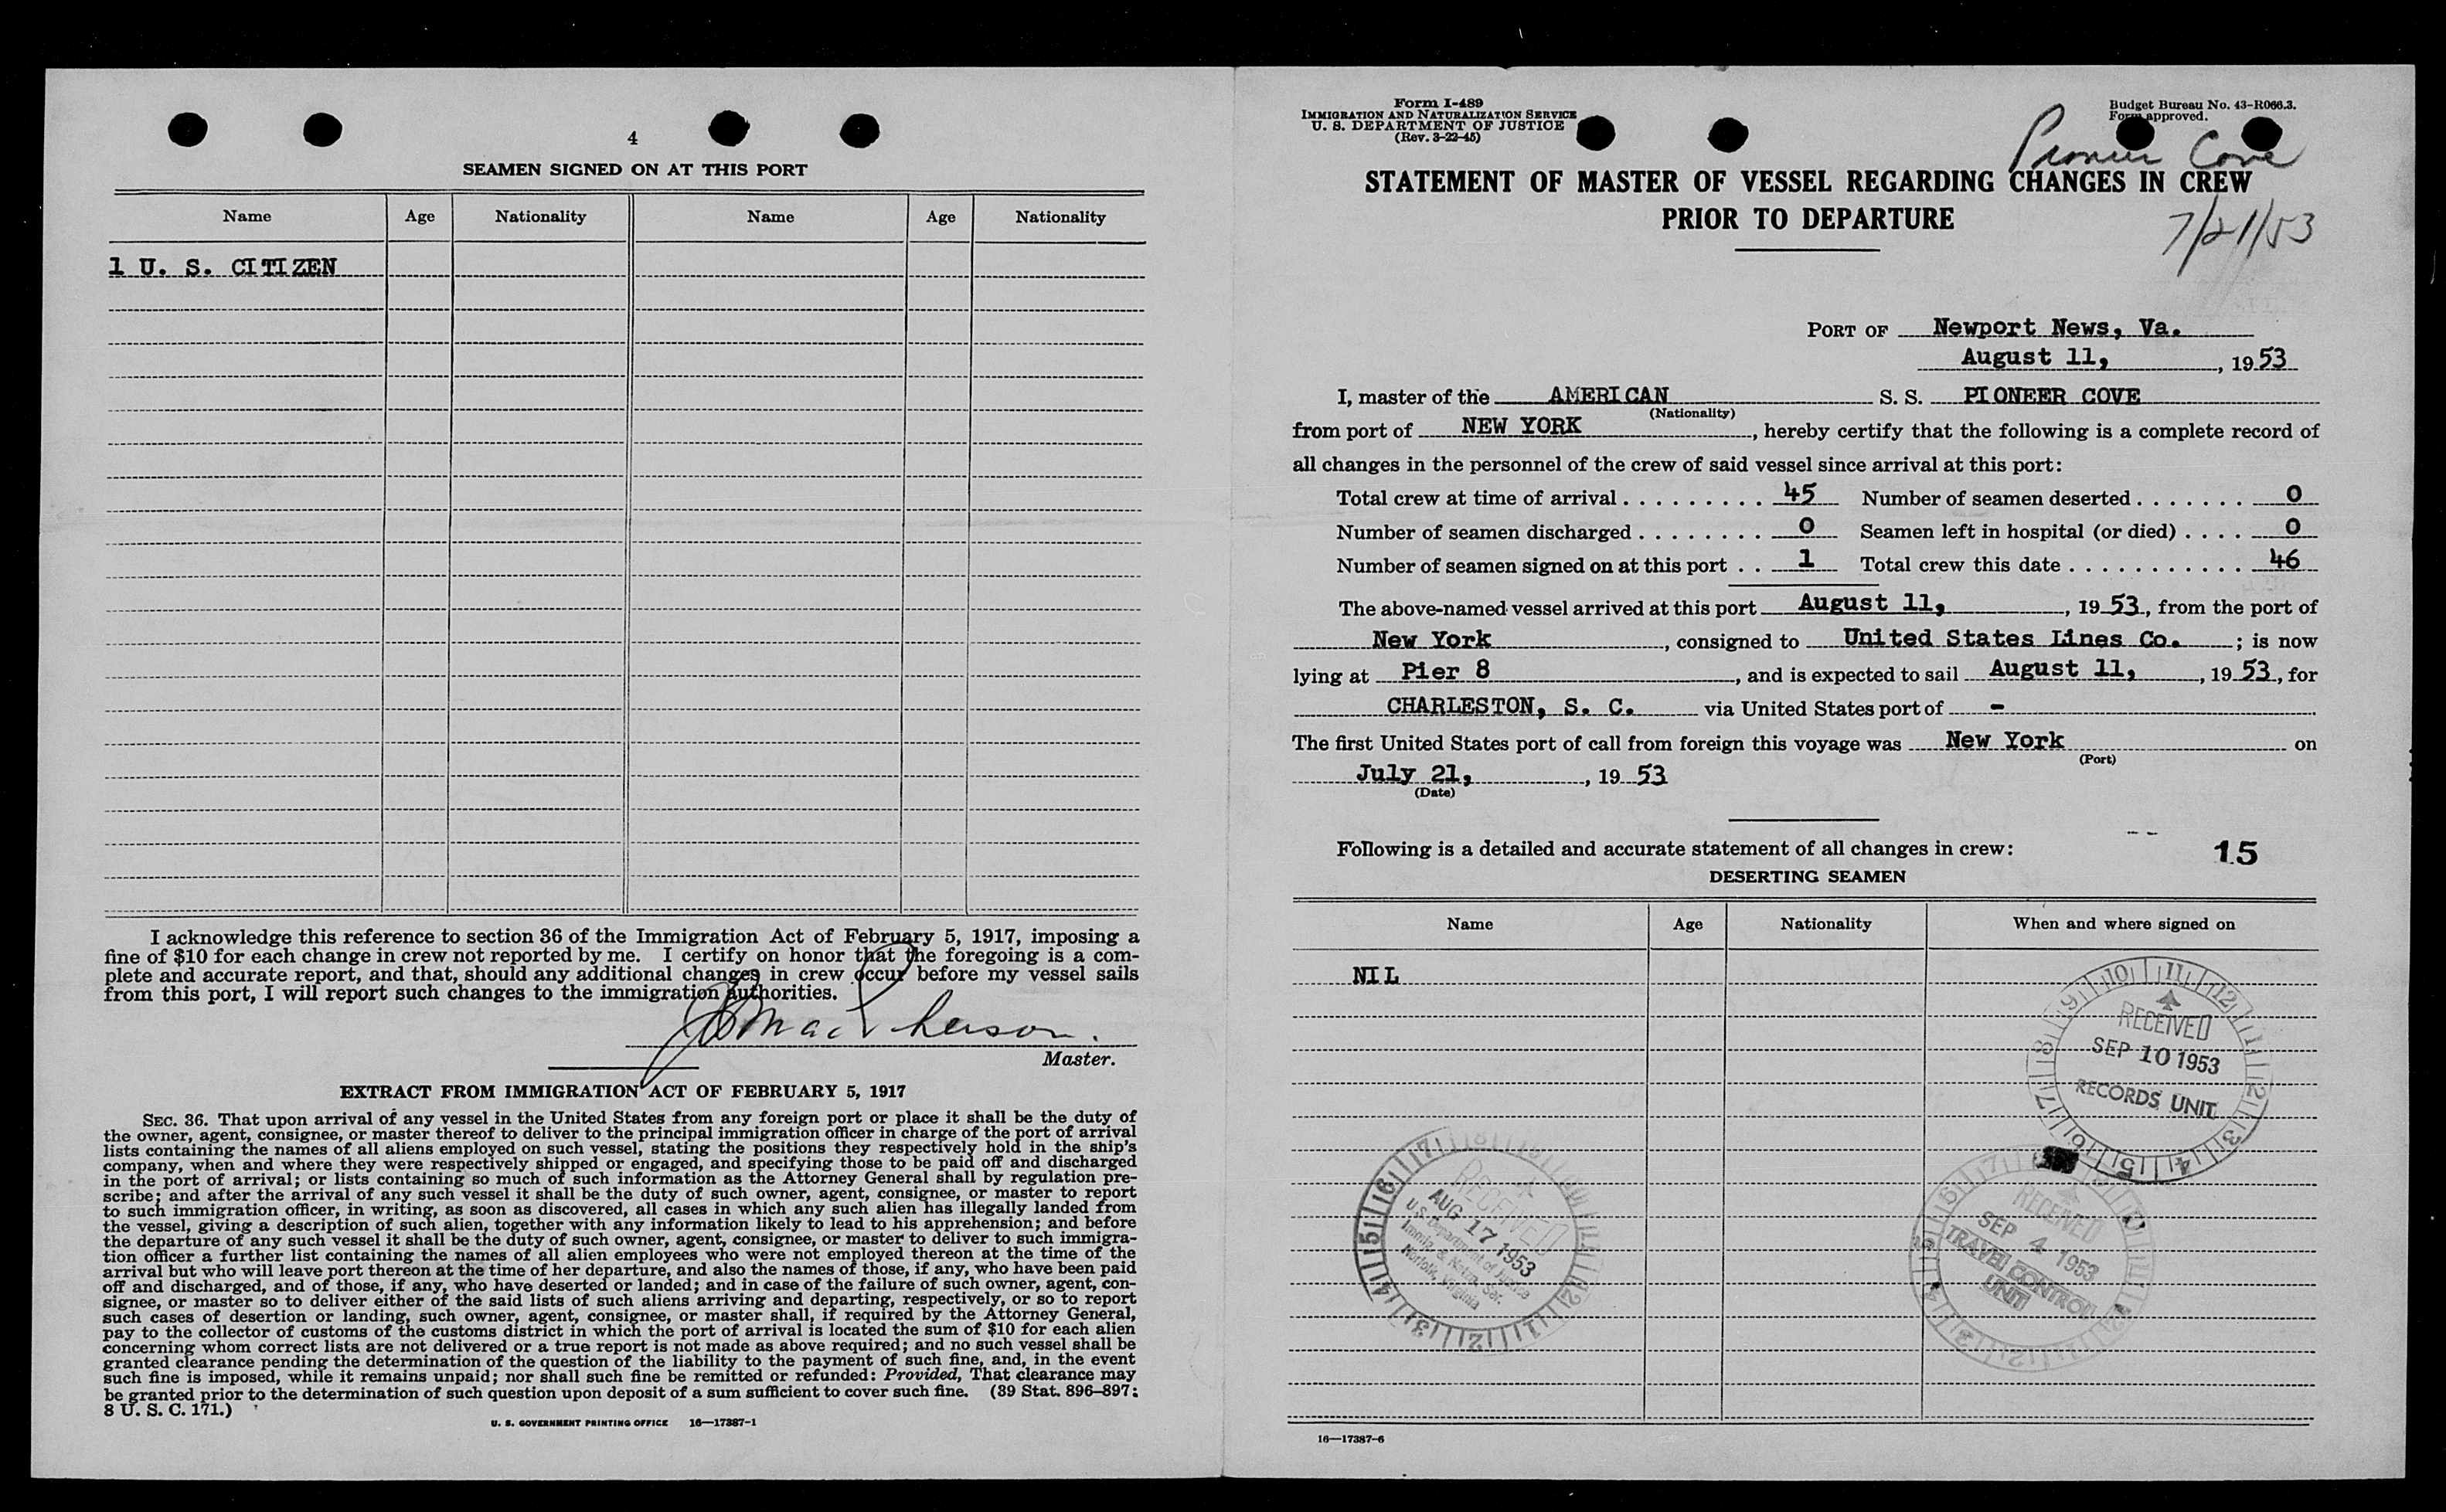 4
SEAMEN SIGNED ON AT THIS PORT
Name Age Nationality Name Age Nationality
1 U. S. CITIZEN
I acknowledge this reference to section 36 of the Immigration Act of February 5, 1917, imposing a
fine of $10 for each change in crew not reported by me. I certify on honor that the foregoing is a com-
plete and accurate report, and that, should any additional changes in crew occur before my vessel sails
from this port, I will report such changes to the immigration authorities.
Master.
EXTRACT FROM IMMIGRATION ACT OF FEBRUARY 5, 1917
SEC. 36. That upon arrival of any vessel in the United States from any foreign port or place it shall be the duty of
the owner, agent, consignee, or master thereof to deliver to the principal immigration officer in charge of the port of arrival
lists containing the names of all aliens employed on such vessel, stating the positions they respectively hold in the ship's
company, when and where they were respectively shipped or engaged, and specifying those to be paid off and discharged
in the port of arrival; or lists containing so much of such information as the Attorney General shall by regulation pre-
scribe; and after the arrival of any such vessel it shall be the duty of such owner, agent, consignee, or master to report
to such immigration officer, in writing, as soon as discovered, all cases in which any such alien has illegally landed from
the vessel, giving a description of such alien, together with any information likely to lead to his apprehension; and before
the departure of any such vessel it shall be the duty of such owner, agent, consignee, or master to deliver to such immigra-
tion officer a further list containing the names of all alien employees who were not employed thereon at the time of the
arrival but who will leave port thereon at the time of her departure, and also the names of those, if any, who have been paid
off and discharged, and of those, if any, who have deserted or landed; and in case of the failure of such owner, agent, con-
signee, or master so to deliver either of the said lists of such aliens arriving and departing, respectively, or so to report
such cases of desertion or landing, such owner, agent, consignee, or master shall, if required by the Attorney General,
pay to the collector of customs of the customs district in which the port of arrival is located the sum of $10 for each alien
concerning whom correct lists are not delivered or a true report is not made as above required; and no such vessel shall be
granted clearance pending the determination of the question of the liability to the payment of such fine, and, in the event
such fine is imposed, while it remains unpaid; nor shall such fine be remitted or refunded: Provided, That clearance may
be granted prior to the determination of such question upon deposit of a sum sufficient to cover such fine. (39 Stat. 896–897;
8 U. S. C. 171.)
U. S. GOVERNMENT PRINTING OFFICE 16—17387-1
Form I-489
IMMIGRATION AND NATURALIZATION SERVICE
U. S. DEPARTMENT OF JUSTICE
(Rev. 3-22-45)
Budget Bureau No. 43-R066.3.
Form approved.
Pioneer Cove
STATEMENT OF MASTER OF VESSEL REGARDING CHANGES IN CREW
PRIOR TO DEPARTURE
7/21/53
PORT OF Newport News, Va.
August 11, , 19 53
I, master of the AMERICAN S. S. PIONEER COVE
(Nationality)
from port of NEW YORK , hereby certify that the following is a complete record of
all changes in the personnel of the crew of said vessel since arrival at this port:
Total crew at time of arrival . . . . . . . . . 45 Number of seamen deserted . . . . . . . 0
Number of seamen discharged . . . . . . . . 0 Seamen left in hospital (or died) . . . . 0
Number of seamen signed on at this port . . 1 Total crew this date . . . . . . . . . . . 46
The above-named vessel arrived at this port August 11, , 19 53, from the port of
New York , consigned to United States Lines Co. ; is now
lying at Pier 8 , and is expected to sail August 11, , 19 53, for
CHARLESTON, S. C. via United States port of -
The first United States port of call from foreign this voyage was New York on
(Port)
July 21, , 19 53
(Date)
Following is a detailed and accurate statement of all changes in crew: 15
DESERTING SEAMEN
Name Age Nationality When and where signed on
NIL
RECEIVED
SEP 10 1953
RECORDS UNIT
RECEIVED
AUG 17 1953
U.S. Department of Justice
Immig. & Natzn. Ser.
Norfolk, Virginia
RECEIVED
SEP 4 1953
TRAVEL CONTROL
UNIT
16—17387-6